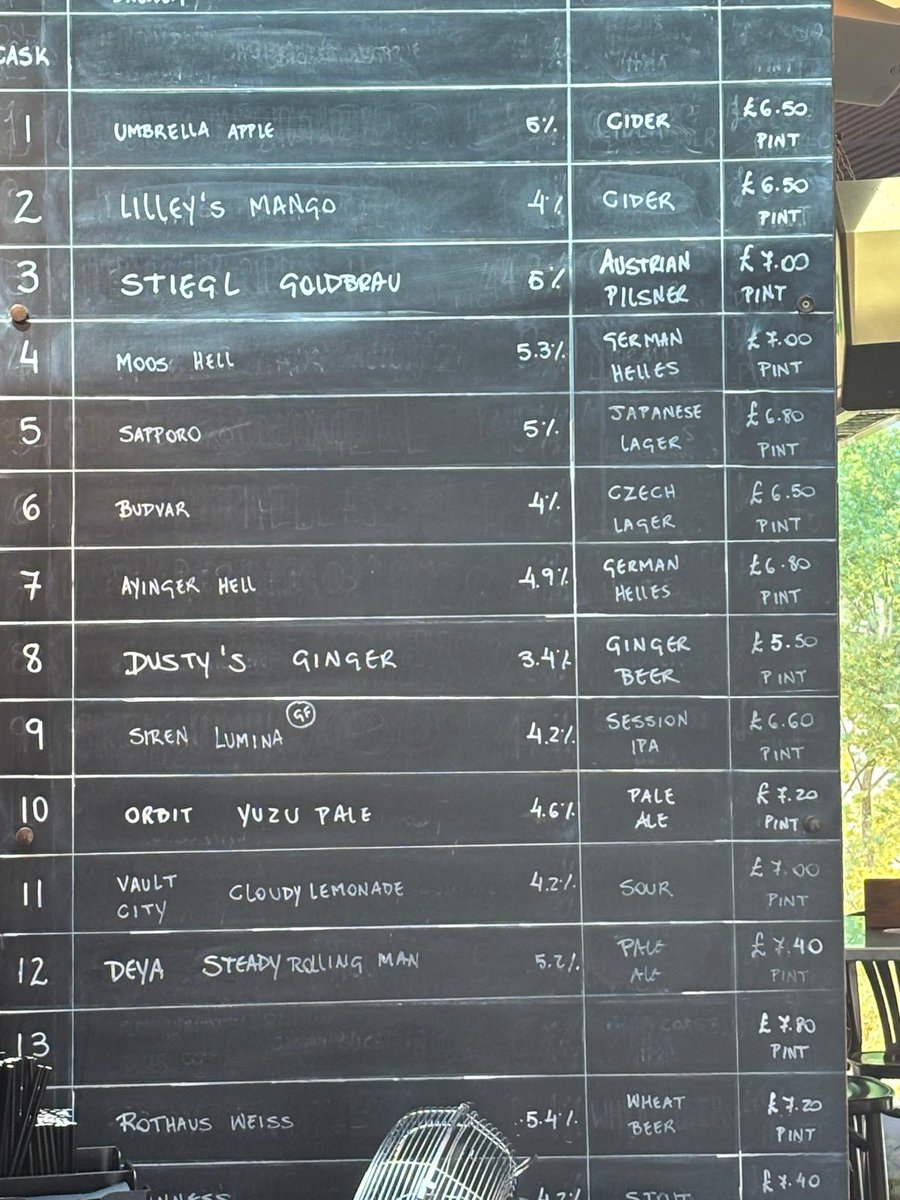 CASK
1 UMBRELLA APPLE 5% CIDER £6.50 PINT
2 LILLEY'S MANGO 4% CIDER £6.50 PINT
3 STIEGL GOLDBRAU 5% AUSTRIAN PILSNER £7.00 PINT
4 MOOS HELL 5.3% GERMAN HELLES £7.00 PINT
5 SAPPORO 5% JAPANESE LAGER £6.80 PINT
6 BUDVAR 4% CZECH LAGER £6.50 PINT
7 AYINGER HELL 4.9% GERMAN HELLES £6.80 PINT
8 DUSTY'S GINGER 3.4% GINGER BEER £5.50 PINT
9 SIREN LUMINA GF 4.2% SESSION IPA £6.60 PINT
10 ORBIT YUZU PALE 4.6% PALE ALE £7.20 PINT
11 VAULT CITY CLOUDY LEMONADE 4.2% SOUR £7.00 PINT
12 DEYA STEADY ROLLING MAN 5.2% PALE ALE £7.40 PINT
13 £7.80 PINT
ROTHAUS WEISS 5.4% WHEAT BEER £7.20 PINT
4.2% STOUT £7.40